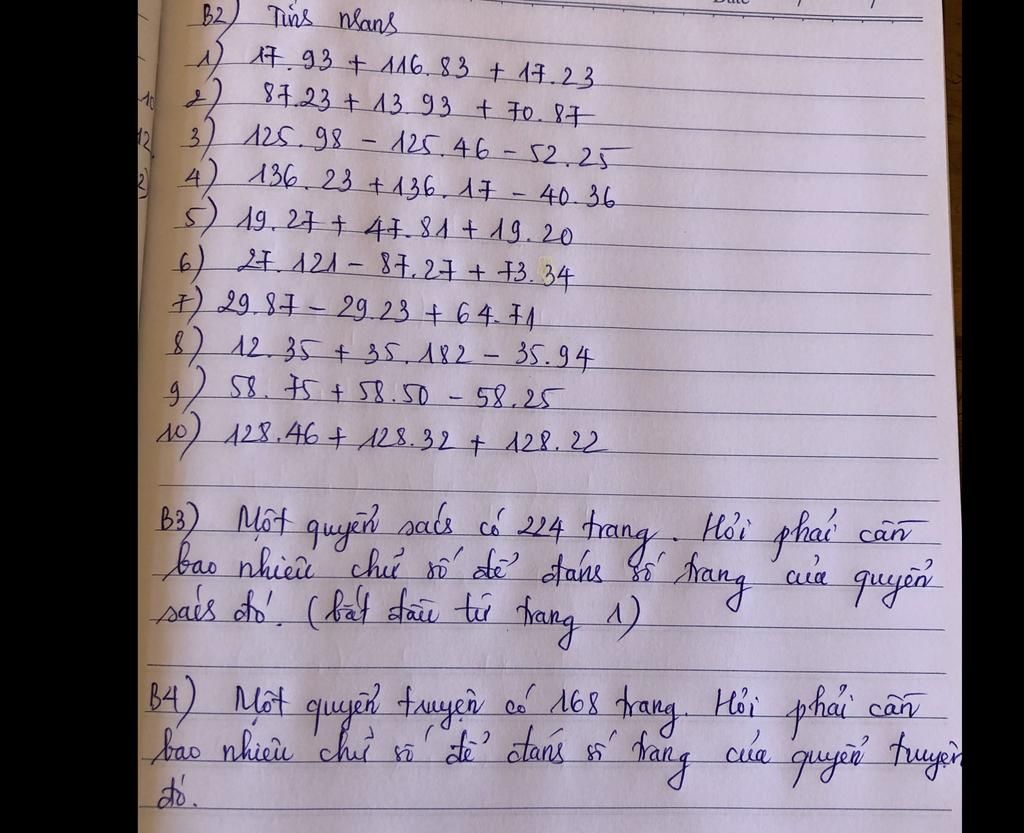 Date / /
B2) Tính nhanh
1) 17.93 + 116.83 + 17.23
2) 87.23 + 13.93 + 70.87
3) 125.98 - 125.46 - 52.25
4) 136.23 + 136.17 - 40.36
5) 19.27 + 47.81 + 19.20
6) 27.121 - 87.27 + 73.34
7) 29.87 - 29.23 + 64.71
8) 12.35 + 35.182 - 35.94
9) 58.75 + 58.50 - 58.25
10) 128.46 + 128.32 + 128.22
B3) Một quyển sách có 224 trang. Hỏi phải cần
bao nhiêu chữ số để đánh số trang của quyển
sách đó. (bắt đầu từ trang 1)
B4) Một quyển truyện có 168 trang. Hỏi phải cần
bao nhiêu chữ số để đánh số trang của quyển truyện
đó.